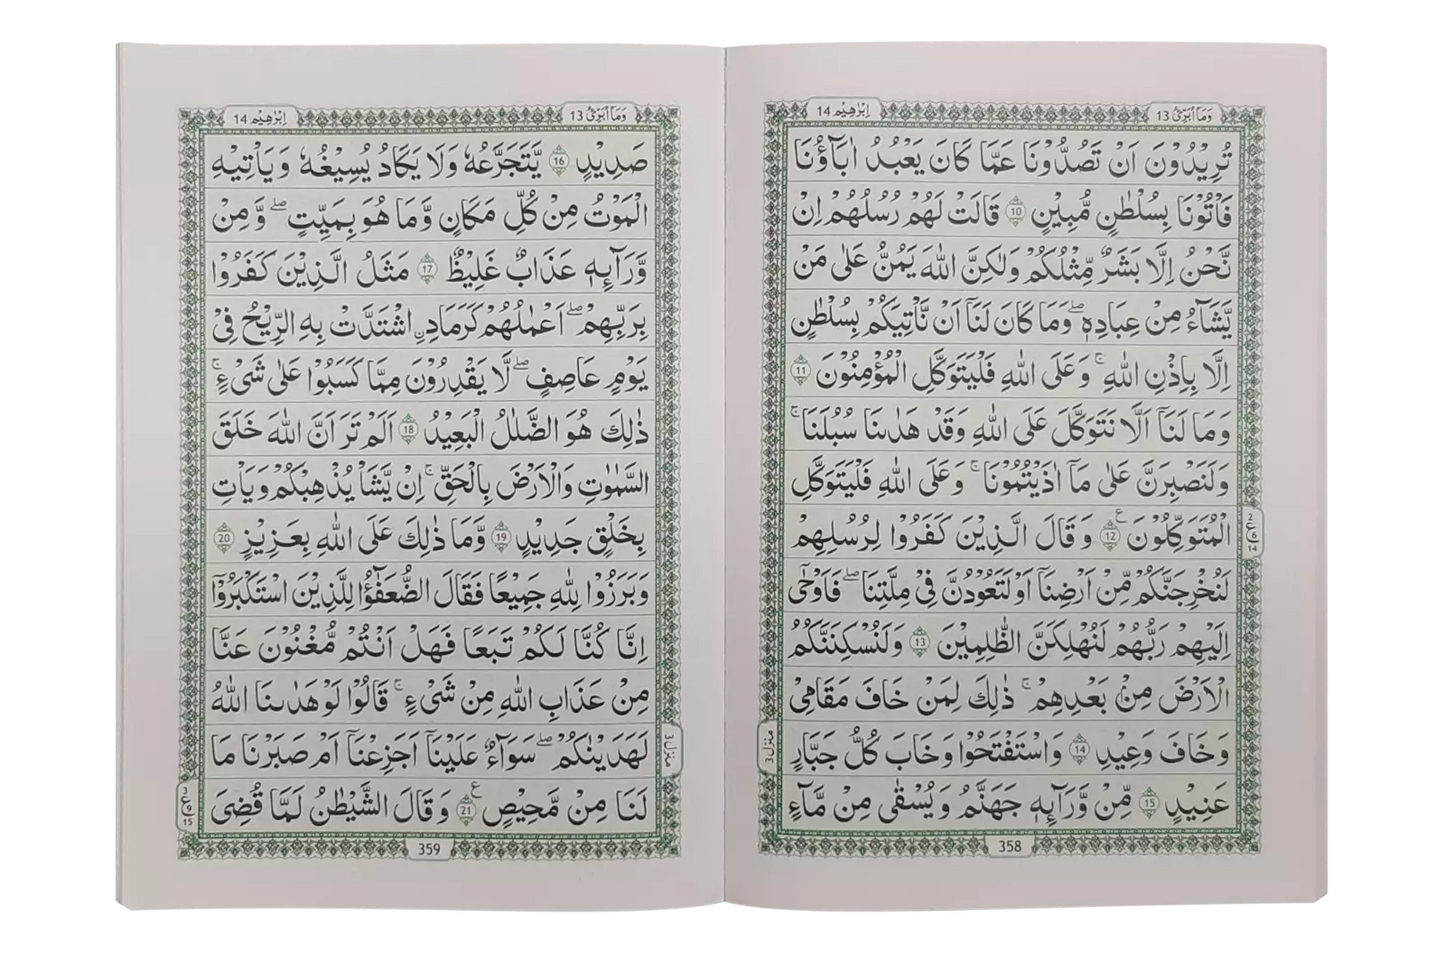 وَمَآ اُبَرِّئُ 13
اِبْرٰهِيْم 14
تُرِيْدُوْنَ اَنْ تَصُدُّوْنَا عَمَّا كَانَ يَعْبُدُ اٰبَآؤُنَا
فَاْتُوْنَا بِسُلْطٰنٍ مُّبِيْنٍ 10 قَالَتْ لَهُمْ رُسُلُهُمْ اِنْ
نَّحْنُ اِلَّا بَشَرٌ مِّثْلُكُمْ وَلٰكِنَّ اللّٰهَ يَمُنُّ عَلٰى مَنْ
يَّشَآءُ مِنْ عِبَادِهٖ ؕ وَمَا كَانَ لَنَآ اَنْ نَّاْتِيَكُمْ بِسُلْطٰنٍ
اِلَّا بِاِذْنِ اللّٰهِ ۚ وَعَلَى اللّٰهِ فَلْيَتَوَكَّلِ الْمُؤْمِنُوْنَ 11
وَمَا لَنَآ اَلَّا نَتَوَكَّلَ عَلَى اللّٰهِ وَقَدْ هَدٰىنَا سُبُلَنَا ۚ
وَلَنَصْبِرَنَّ عَلٰى مَآ اٰذَيْتُمُوْنَا ۚ وَعَلَى اللّٰهِ فَلْيَتَوَكَّلِ
الْمُتَوَكِّلُوْنَ 12 ع وَقَالَ الَّذِيْنَ كَفَرُوْا لِرُسُلِهِمْ
2 ع 6 14
لَنُخْرِجَنَّكُمْ مِّنْ اَرْضِنَآ اَوْ لَتَعُوْدُنَّ فِيْ مِلَّتِنَا ۖ فَاَوْحٰٓى
اِلَيْهِمْ رَبُّهُمْ لَنُهْلِكَنَّ الظّٰلِمِيْنَ 13 وَلَنُسْكِنَنَّكُمُ
الْاَرْضَ مِنْۢ بَعْدِهِمْ ۚ ذٰلِكَ لِمَنْ خَافَ مَقَامِيْ
وَخَافَ وَعِيْدِ 14 وَاسْتَفْتَحُوْا وَخَابَ كُلُّ جَبَّارٍ
منزل 3
عَنِيْدٍ 15 مِّنْ وَّرَآئِهٖ جَهَنَّمُ وَيُسْقٰى مِنْ مَّآءٍ
358
وَمَآ اُبَرِّئُ 13
اِبْرٰهِيْم 14
صَدِيْدٍ 16 يَّتَجَرَّعُهٗ وَلَا يَكَادُ يُسِيْغُهٗ وَيَاْتِيْهِ
الْمَوْتُ مِنْ كُلِّ مَكَانٍ وَّمَا هُوَ بِمَيِّتٍ ۖ وَّمِنْ
وَّرَآئِهٖ عَذَابٌ غَلِيْظٌ 17 مَثَلُ الَّذِيْنَ كَفَرُوْا
بِرَبِّهِمْ ۖ اَعْمٰلُهُمْ كَرَمَادِ ۨاشْتَدَّتْ بِهِ الرِّيْحُ فِيْ
يَوْمٍ عَاصِفٍ ۖ لَّا يَقْدِرُوْنَ مِمَّا كَسَبُوْا عَلٰى شَيْءٍ ۚ
ذٰلِكَ هُوَ الضَّلٰلُ الْبَعِيْدُ 18 اَلَمْ تَرَ اَنَّ اللّٰهَ خَلَقَ
السَّمٰوٰتِ وَالْاَرْضَ بِالْحَقِّ ۚ اِنْ يَّشَاْ يُذْهِبْكُمْ وَيَاْتِ
بِخَلْقٍ جَدِيْدٍ 19 وَّمَا ذٰلِكَ عَلَى اللّٰهِ بِعَزِيْزٍ 20
وَبَرَزُوْا لِلّٰهِ جَمِيْعًا فَقَالَ الضُّعَفٰٓؤُا لِلَّذِيْنَ اسْتَكْبَرُوْٓا
اِنَّا كُنَّا لَكُمْ تَبَعًا فَهَلْ اَنْتُمْ مُّغْنُوْنَ عَنَّا
مِنْ عَذَابِ اللّٰهِ مِنْ شَيْءٍ ۚ قَالُوْا لَوْ هَدٰىنَا اللّٰهُ
لَهَدَيْنٰكُمْ ۖ سَوَآءٌ عَلَيْنَآ اَجَزِعْنَآ اَمْ صَبَرْنَا مَا
منزل 3
لَنَا مِنْ مَّحِيْصٍ 21 ع وَقَالَ الشَّيْطٰنُ لَمَّا قُضِيَ
3 ع 9 15
359